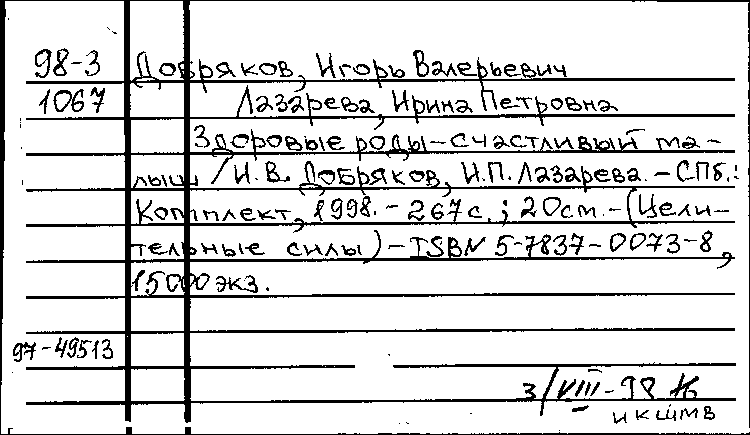 98-3 Добряков, Игорь Валерьевич
1067 Лазарева, Ирина Петровна
Здоровые роды – счастливый ма-
лыш / И.В. Добряков, И.П. Лазарева. – СПб.:
Комплект, 1998. – 267 с.; 20 см. – (Цели-
тельные силы) – ISBN 5-7837-0073-8,
15000 экз.
97-49513
3/VIII-98